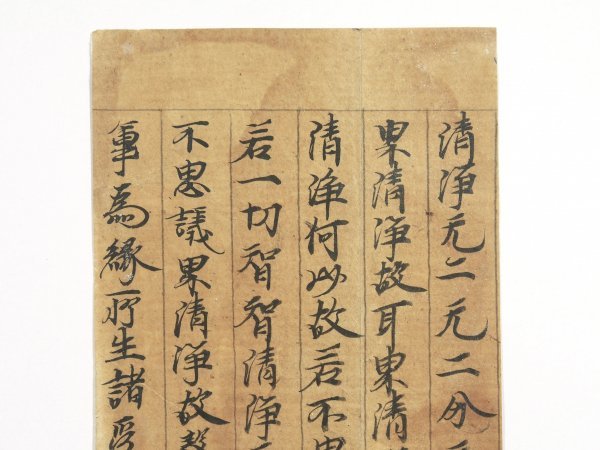 清淨无二无二分
界清淨故耳界清
清淨何以故若不思
若一切智智清淨
不思議界清淨故聲
事為緣所生諸受